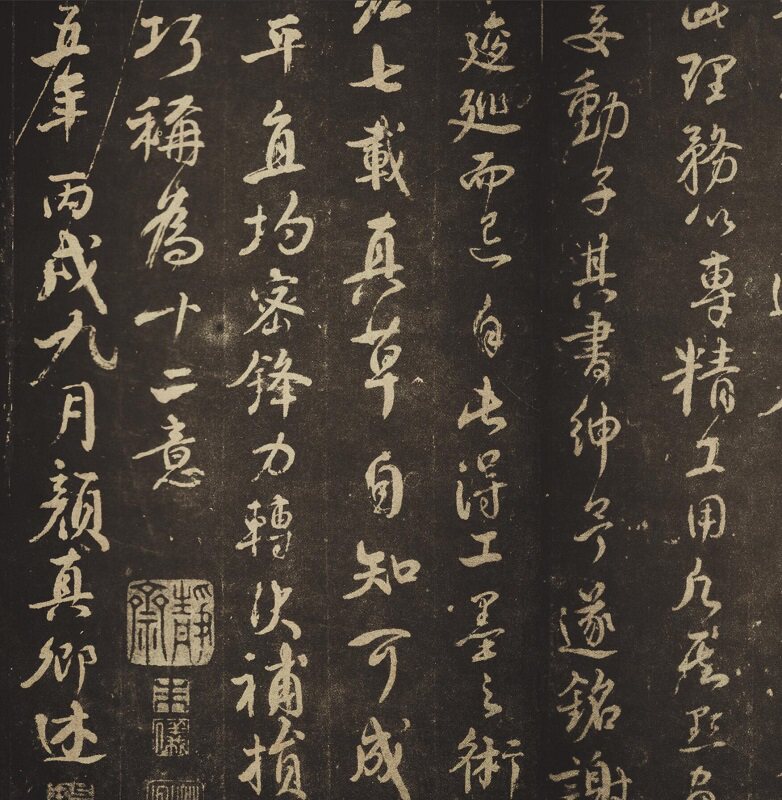 此理務以專精工用凡點
妄動子其書紳予遂銘謝
逡廵而已自此得工墨之術
七載真草自知可成
平直均密鋒力轉決補損
巧稱為十二意
靜齋
五年丙戌九月顏真卿述